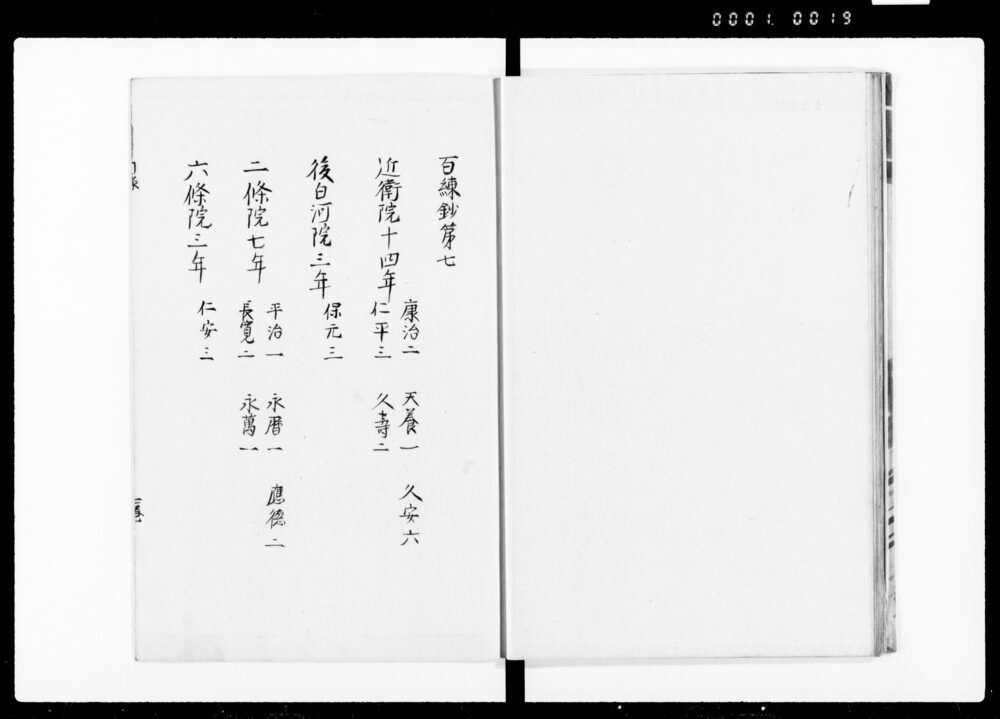 0001. 0019
百練鈔第七
近衛院十四年
康治二 天養一 久安六
仁平三 久壽二
後白河院三年
保元三
二條院七年
平治一 永曆一 應德二
長寬二 永萬一
六條院三年
仁安三